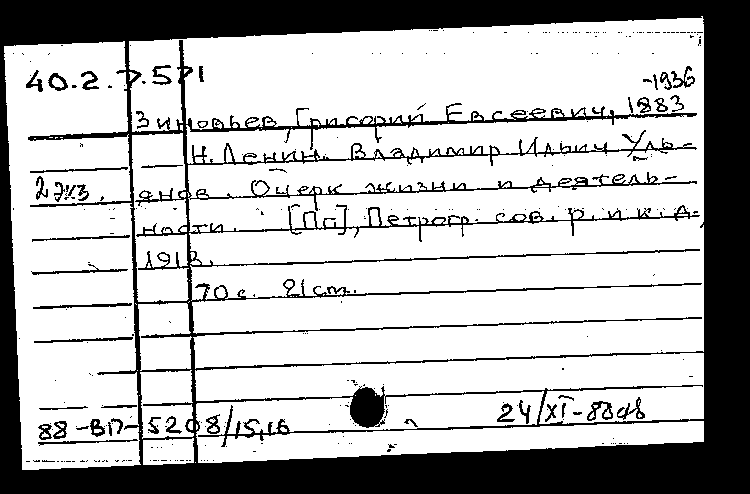 40.2.7.571
-1936
Зиновьев, Григорий Евсеевич, 1883
Н. Ленин. Владимир Ильич Уль-
2 экз. янов. Очерк жизни и деятель-
ности. [Пг], Петрогр. сов. р. и к. д.,
1918.
70 с. 21 cm.
88-ВП-5208/15,16
24/XI-88